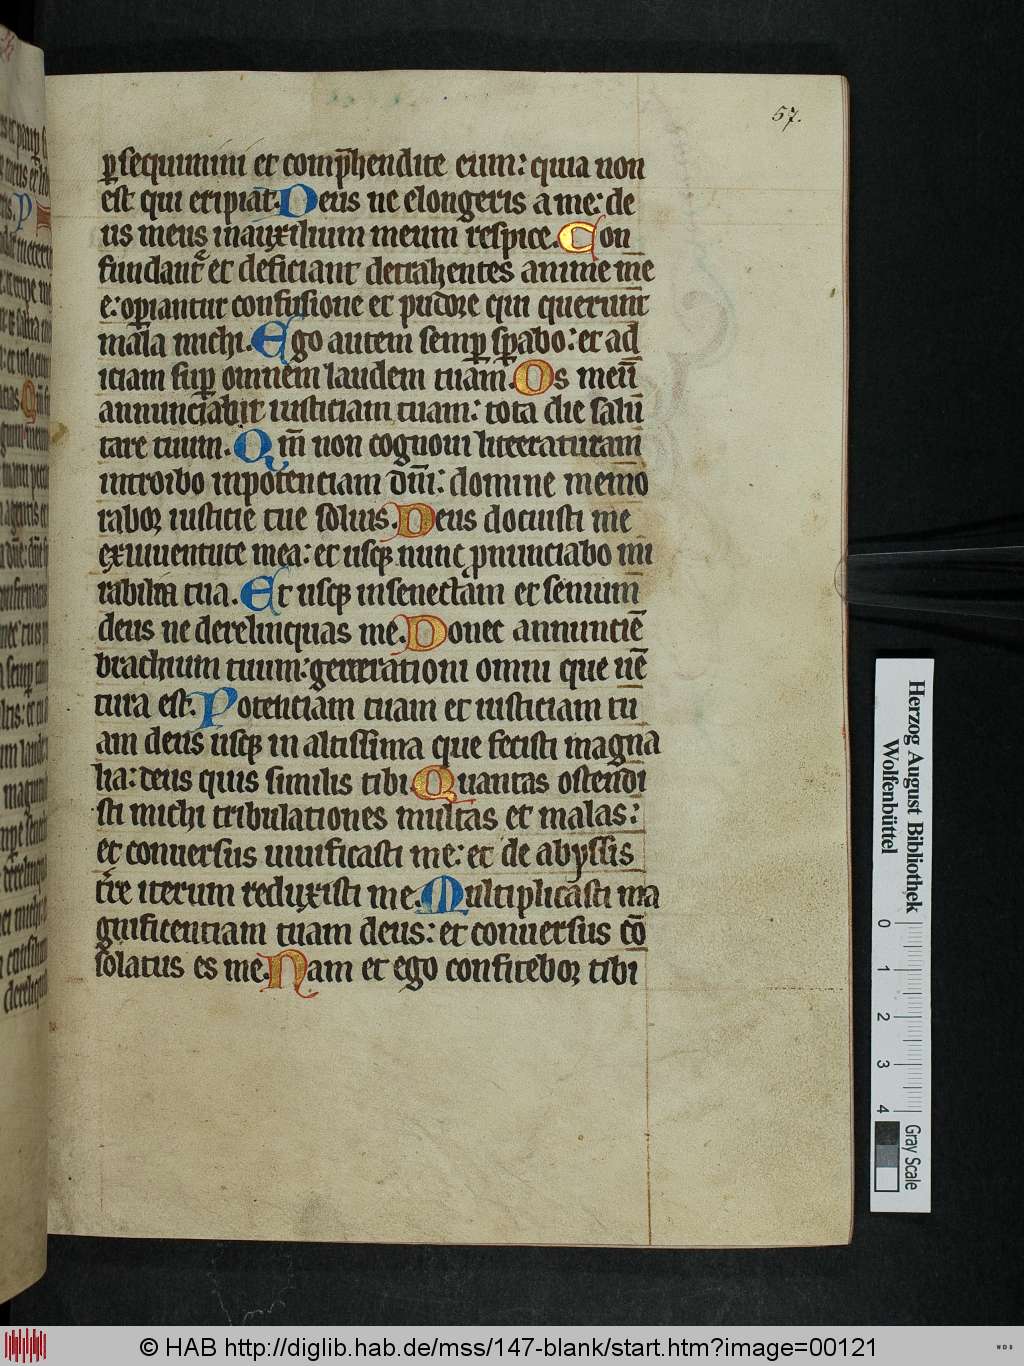 57.
p̲sequimini et comp̄hendite eum: quia non
est qui eripiat. Deus ne elongeris a me: de
us meus in auxilium meum respice. Con
fundant᷑ et deficiant detrahentes anime me
e: opiantur confusione et pudore qui querunt
mala michi. Ego autem semꝑ sꝑabo: et ad
iciam suꝑ omnem laudem tuam. Os meū
annunciabit iusticiam tuam: tota die salu
tare tuum. Qm̄ non cognoui litteraturam
introibo in potenciam dn̄i: domine memo
rabor iusticie tue solius. Deus docuisti me
ex iuuentute mea: et usqꝫ nunc ꝓnunciabo mi
rabilia tua. Et usqꝫ in senectam et senium
deus ne derelinquas me. Donec annunciē
brachium tuum: generationi omni que uē
tura est. Potentiam tuam et iusticiam tu
am deus usqꝫ in altissima que fecisti magna
lia: deus quis similis tibi. Quantas ostendi
sti michi tribulationes multas et malas:
et conuersus uiuificasti me: et de abyssis
t̄re iterum reduxisti me. Multiplicasti ma
gnificentiam tuam deus: et conuersus cō
solatus es me. Nam et ego confitebor tibi
Herzog August Bibliothek
Wolfenbüttel
0 1 2 3 4
Gray Scale
© HAB http://diglib.hab.de/mss/147-blank/start.htm?image=00121